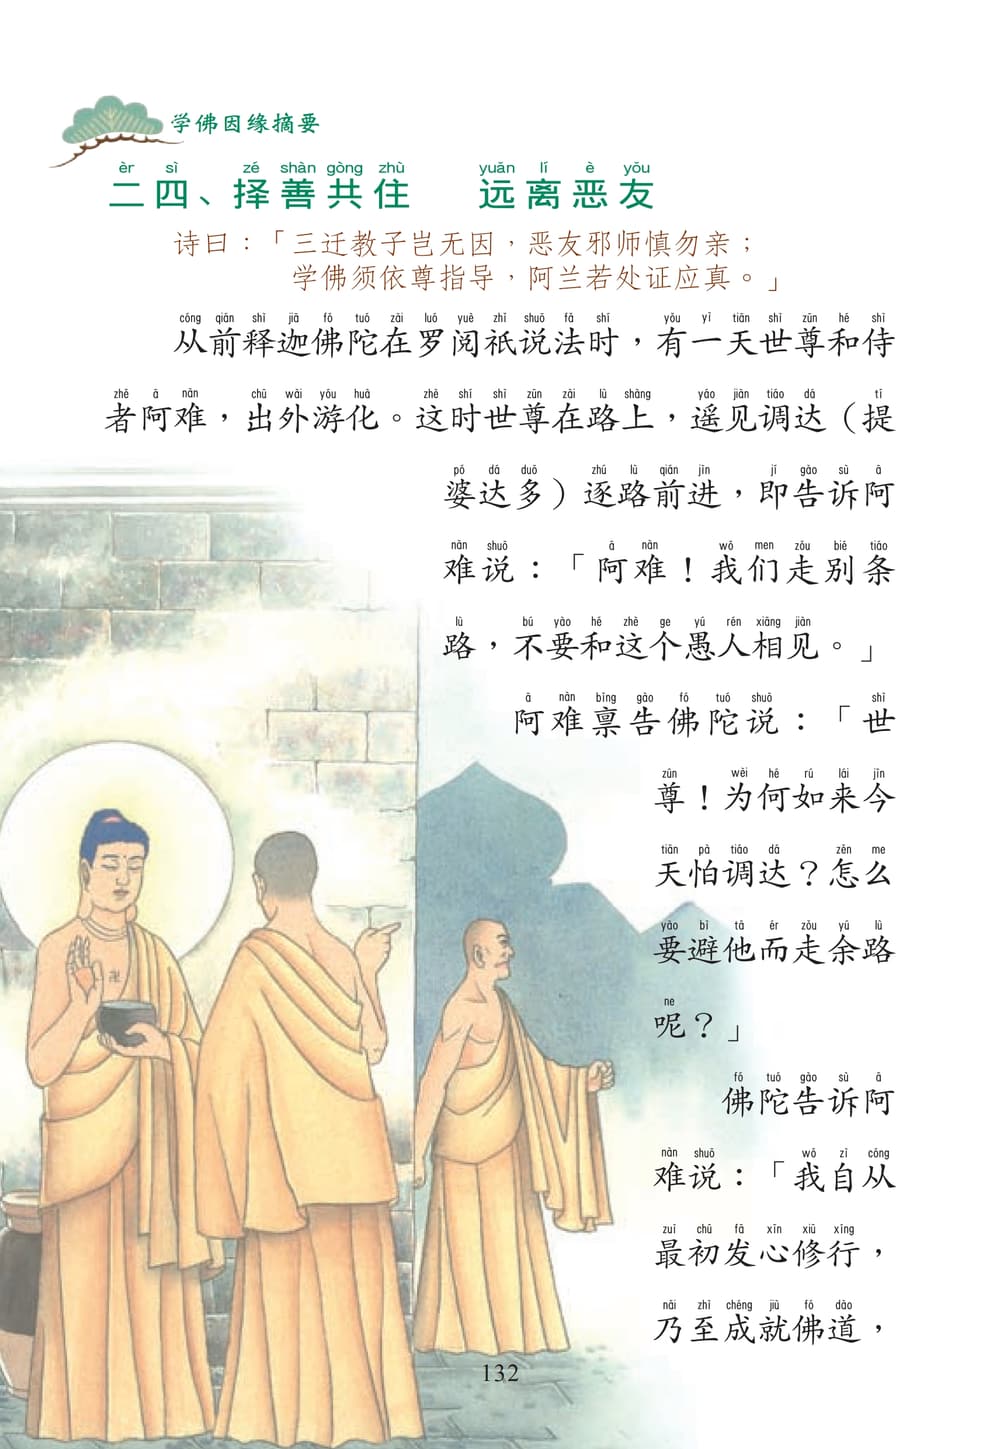 学佛因缘摘要
èr sì zé shàn gòng zhù yuǎn lí è yǒu
二四、择善共住 远离恶友
诗曰：「三迁教子岂无因，恶友邪师慎勿亲；
学佛须依尊指导，阿兰若处证应真。」
cóng qián shì jiā fó tuó zài luó yuè zhǐ shuō fǎ shí yǒu yī tiān shì zūn hé shì
从前释迦佛陀在罗阅祇说法时，有一天世尊和侍
zhě ā nán chū wài yóu huà zhè shí shì zūn zài lù shàng yáo jiàn tiáo dá tí
者阿难，出外游化。这时世尊在路上，遥见调达（提
pó dá duō zhú lù qián jìn jí gào sù ā
婆达多）逐路前进，即告诉阿
nàn shuō ā nàn wǒ men zǒu bié tiáo
难说：「阿难！我们走别条
lù bú yào hé zhè ge yú rén xiāng jiàn
路，不要和这个愚人相见。」
ā nàn bǐng gào fó tuó shuō shì
阿难禀告佛陀说：「世
zūn wèi hé rú lái jīn
尊！为何如来今
tiān pà tiáo dá zěn me
天怕调达？怎么
yào bì tā ér zǒu yú lù
要避他而走余路
ne
呢？」
fó tuó gào sù ā
佛陀告诉阿
nàn shuō wǒ zì cóng
难说：「我自从
zuì chū fā xīn xiū xíng
最初发心修行，
nǎi zhì chéng jiù fó dào
乃至成就佛道，
132